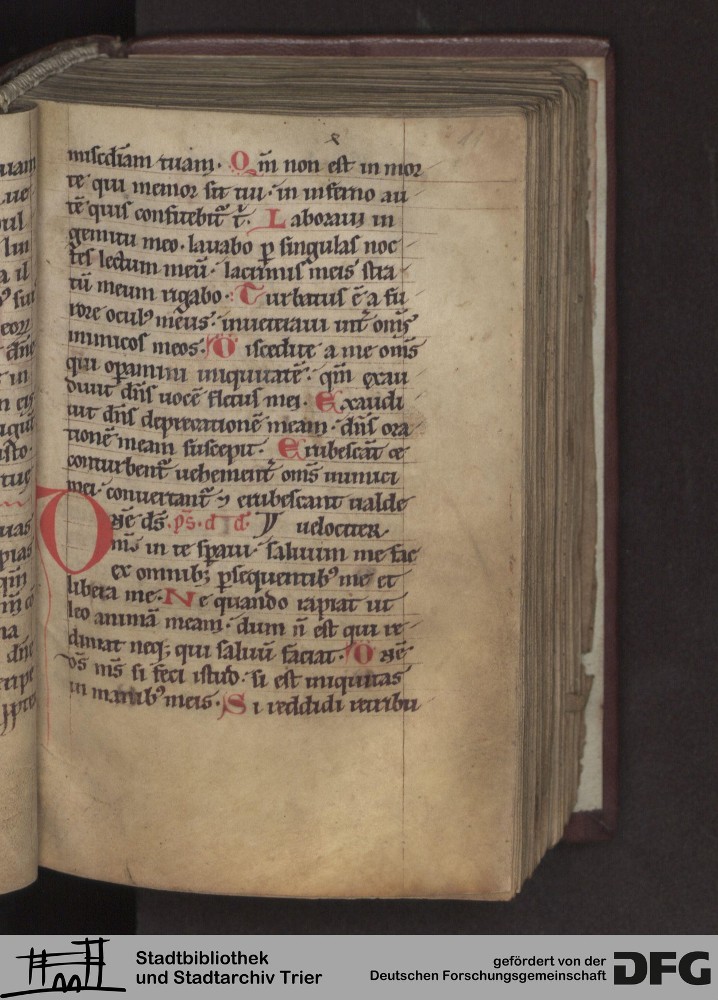 misc̄diam tuam. Qm̄ non est in mor
te qui memor sit tui. in inferno au
tē quis confitebit᷑ t᷑. Laboraui in
gemitu meo. lauabo p singulas noc
tes lectum meū. lacrimis meis stra
tū meum rigabo. Turbatus ē a fu
rore oculꝰ meus. inueteraui int᷑ om̄s
inimicos meos. Discedite a me om̄s
qui operamini iniquitatē. qm̄ exau
diuit dn̄s uocē fletus mei. Exaudi
uit dn̄s deprecationē meam. dn̄s ora
tionē meam suscepit. Erubescāt &
conturbent᷑ uehement᷑ om̄s inimici
mei. conuertant᷑ ⁊ erubescant ualde
uelociter.
Dn̄e ds̄ ps̄. d d.
ms̄ in te speraui. saluum me fac
ex omnibꝫ psequentibꝰ me et
libera me. Ne quando rapiat ut
leo animā meam. dum n̄ est qui re
dimat neqꝫ qui saluū faciat. Dn̄e
ds̄ ms̄ si feci istud. si est iniquitas
in manibꝰ meis. Si reddidi retribu
Stadtbibliothek
und Stadtarchiv Trier
gefördert von der
Deutschen Forschungsgemeinschaft
DFG